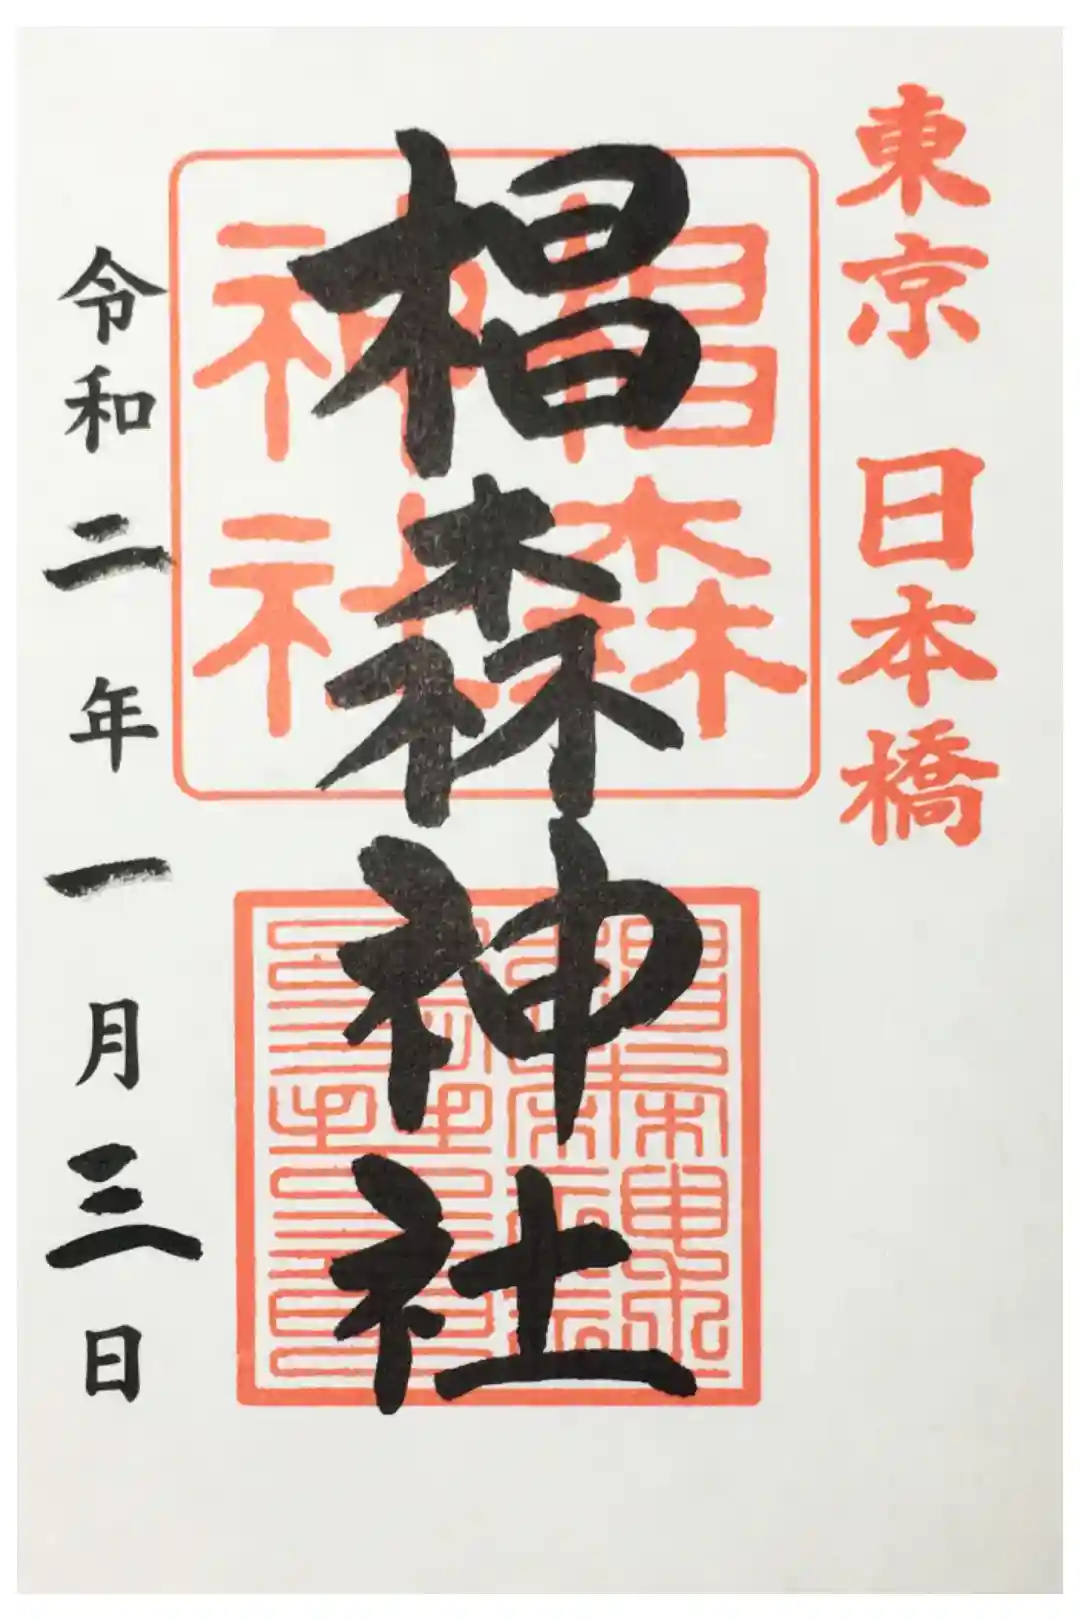 東京 日本橋
椙森神社
椙森
神社
令和二年一月三日